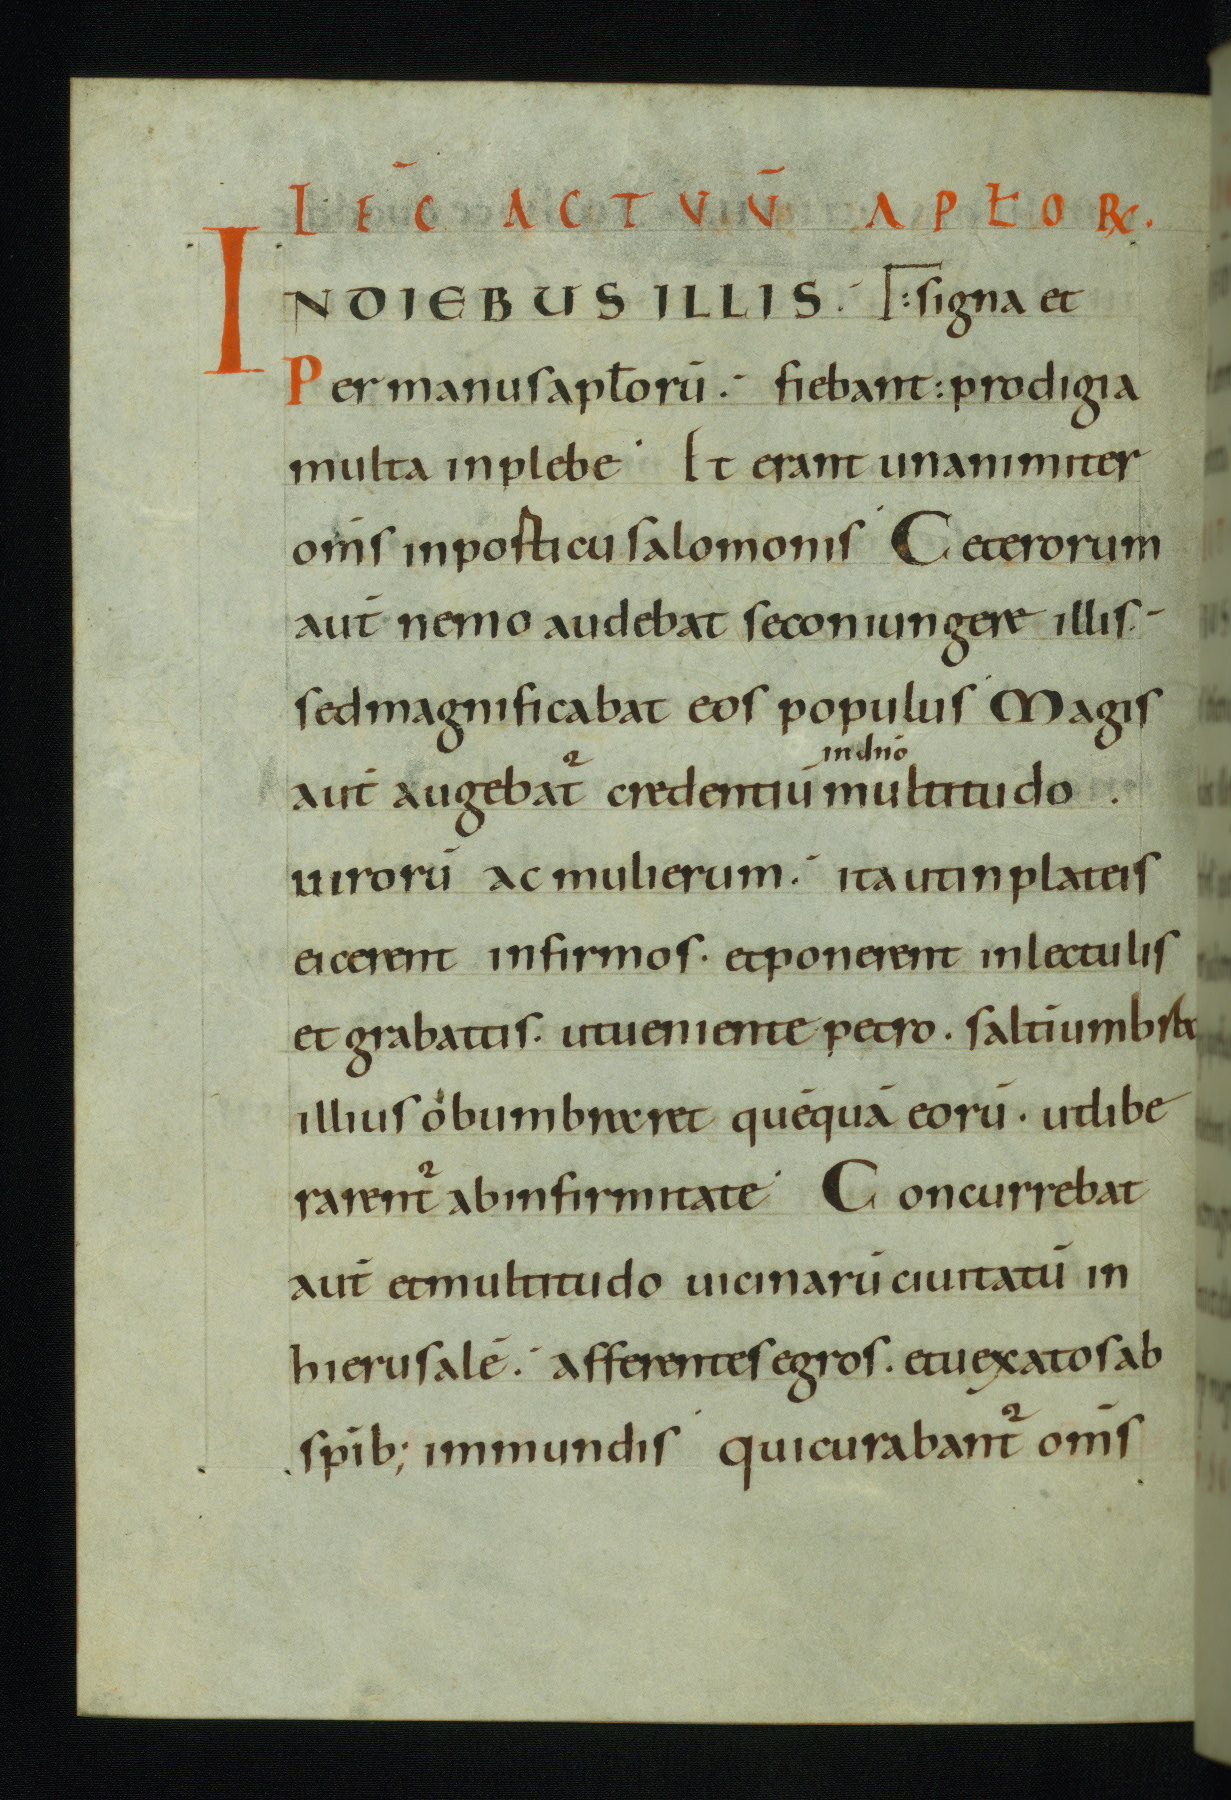 LEC̄ ACTVV̄ APŁORꝝ.
IN DIEBUS ILLIS. Γ: signa et
Per manus apłorū. fiebant: prodigia
multa inplebe Et erant unanimiter
om̄s inposticu salomonis Ceterorum
aut̄ nemo audebat seconiungere illis.
sedmagnificabat eos populus Magis
aut̄ augebat᷑ credentiū multitudo .
in dn̄o
uirorū ac mulierum. ita utinplateis
eicerent infirmos. etponerent inlectulis
et grabattis. utueniente petro. saltīumbra
illius obumbraret quēquā eorū. utlibe
rarent᷑ abinfirmitate Concurrebat
aut̄ etmultitudo uicinarū ciuitatū in
hierusalē. afferentes egros. etuexatos ab
spīb; immundis quicurabant᷑ om̄s